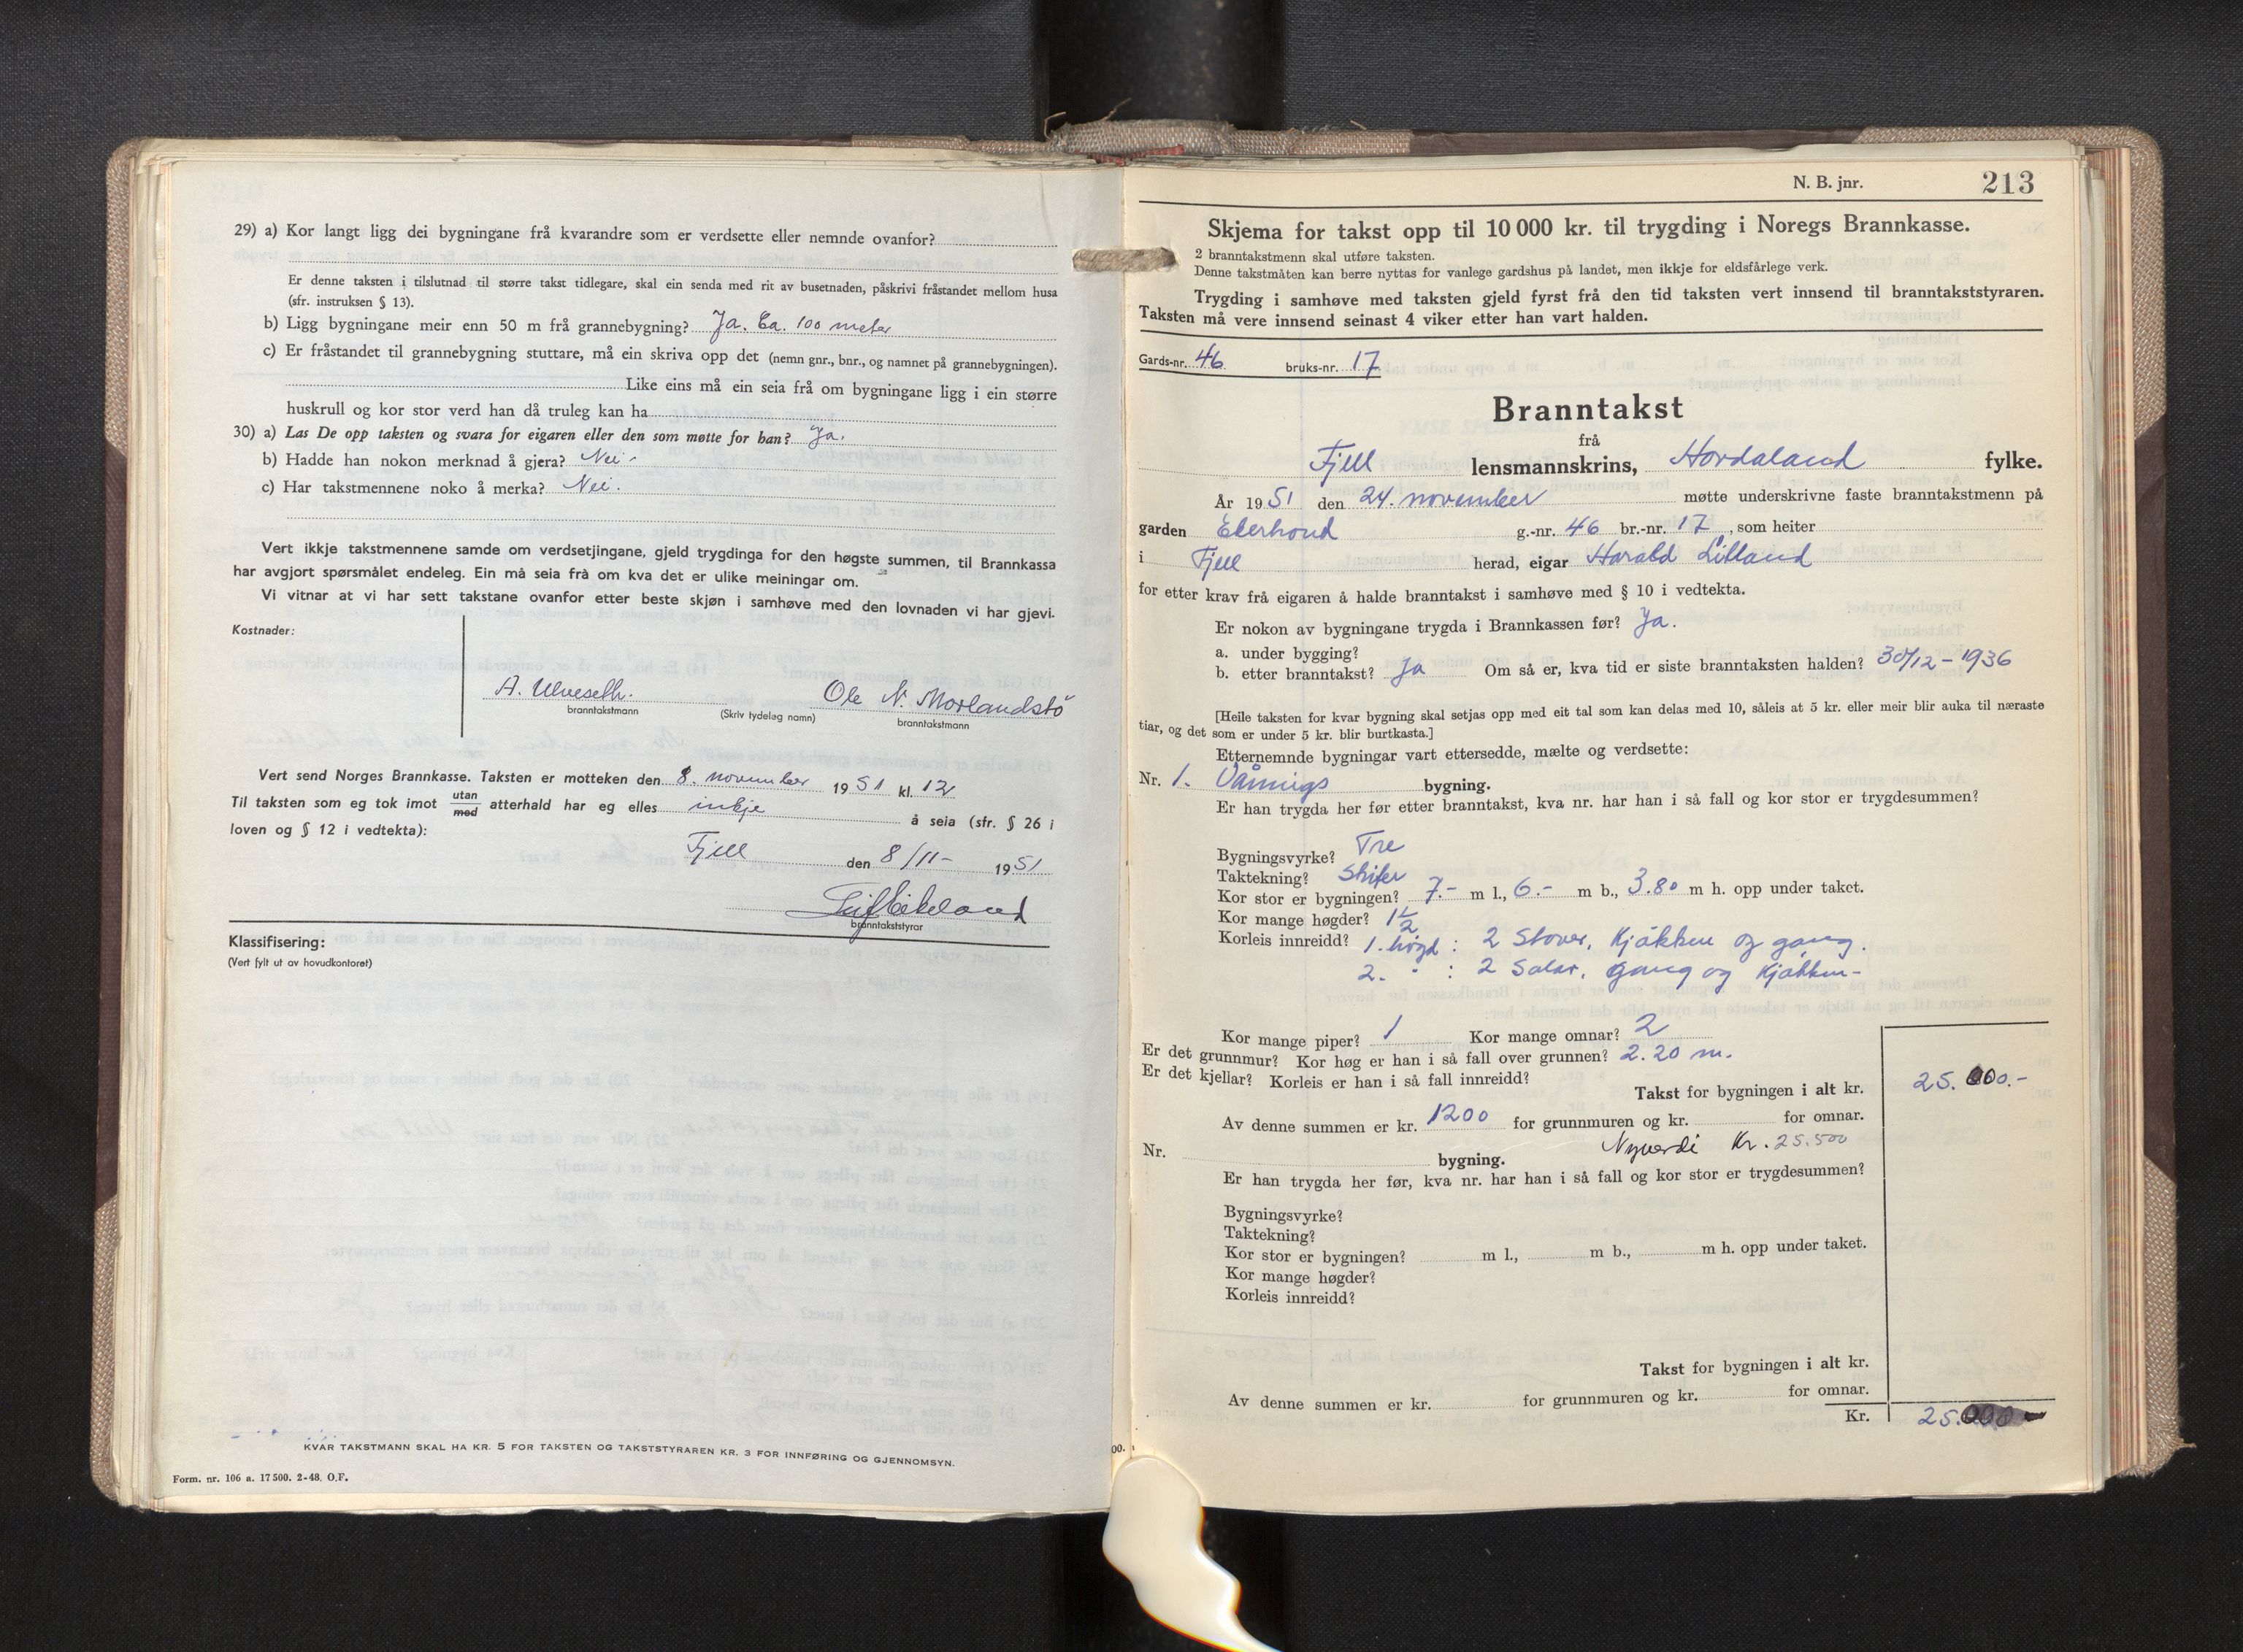 29) a) Kor langt ligg dei bygningane frå kvarandre som er verdsette eller nemnde ovanfor?
Er denne taksten i tilslutnad til større takst tidlegare, skal ein senda med rit av busetnaden, påskrivi fråstandet mellom husa
(sfr. instruksen § 13).
b) Ligg bygningane meir enn 50 m frå grannebygning? Ja. Ca. 100 meter
c) Er fråstandet til grannebygning stuttare, må ein skriva opp det (nemn gnr., bnr., og namnet på grannebygningen).
Like eins må ein seia frå om bygningane ligg i ein større
huskrull og kor stor verd han då truleg kan ha
30) a) Las De opp taksten og svara for eigaren eller den som møtte for han? Ja.
b) Hadde han nokon merknad å gjera? Nei -
c) Har takstmennene noko å merka? Nei.
Vert ikkje takstmennene samde om verdsetjingane, gjeld trygdinga for den høgste summen, til Brannkassa
har avgjort spørsmålet endeleg. Ein må seia frå om kva det er ulike meiningar om.
Vi vitnar at vi har sett takstane ovanfor etter beste skjøn i samhøve med den lovnaden vi har gjevi.
Kostnader:
A. Ulveseth. Ole N. Morlandstö
branntakstmann (Skriv tydeleg namn) branntakstmann
Vert send Norges Brannkasse. Taksten er motteken den 8. november 1951 kl. 12
Til taksten som eg tok imot utan/med atterhald har eg elles inkje å seia (sfr. § 26 i
loven og § 12 i vedtekta):
Fjell den 8/11- 1951
Leif Eikeland
branntakststyrar
Klassifisering:
(Vert fylt ut av hovudkontoret)
KVAR TAKSTMANN SKAL HA KR. 5 FOR TAKSTEN OG TAKSTSTYRAREN KR. 3 FOR INNFØRING OG GJENNOMSYN.
Form. nr. 106 a. 17500. 2-48. O.F.
N. B. jnr. 213
Skjema for takst opp til 10 000 kr. til trygding i Noregs Brannkasse.
2 branntakstmenn skal utføre taksten.
Denne takstmåten kan berre nyttas for vanlege gardshus på landet, men ikkje for eldsfårlege verk.
Trygding i samhøve med taksten gjeld fyrst frå den tid taksten vert innsend til branntakststyraren.
Taksten må vere innsend seinast 4 viker etter han vart halden.
Gards-nr. 46 bruks-nr. 17
Branntakst
frå
Fjell lensmannskrins, Hordaland fylke.
År 1951 den 24. november møtte underskrivne faste branntakstmenn på
garden Ekerhovd g.-nr. 46 br.-nr. 17, som heiter
i Fjell herad, eigar Harald Lilland
for etter krav frå eigaren å halde branntakst i samhøve med § 10 i vedtekta.
Er nokon av bygningane trygda i Brannkassen før? Ja.
a. under bygging?
b. etter branntakst? Ja Om så er, kva tid er siste branntaksten halden? 30/12-1936
[Heile taksten for kvar bygning skal setjas opp med eit tal som kan delas med 10, såleis at 5 kr. eller meir blir auka til næraste
tiar, og det som er under 5 kr. blir burtkasta.]
Etternemnde bygningar vart ettersedde, mælte og verdsette:
Nr. 1. Våmings bygning.
Er han trygda her før etter branntakst, kva nr. har han i så fall og kor stor er trygdesummen?
Bygningsvyrke? Tre
Taktekning? Skifer
Kor stor er bygningen? 7.- m l., 6.- m b., 3.80 m h. opp under taket.
Kor mange høgder? 1½
Korleis innreidd? 1. högd : 2 Stover, Kjökken og gang.
2. " : 2 Salar, gang og Kjökken-
Kor mange piper? 1 Kor mange omnar? 2
Er det grunnmur? Kor høg er han i så fall over grunnen? 2.20 m.
Er det kjellar? Korleis er han i så fall innreidd?
Takst for bygningen i alt kr. 25.000.-
Av denne summen er kr. 1200 for grunnmuren og kr. for omnar.
Nyverdi Kr. 25.500
Nr. bygning.
Er han trygda her før, kva nr. har han i så fall og kor stor er trygdesummen?
Bygningsvyrke?
Taktekning?
Kor stor er bygningen? m l., m b., m h. opp under taket.
Kor mange høgder?
Korleis innreidd?
Takst for bygningen i alt kr.
Av denne summen er kr. for grunnmuren og kr. for omnar.
Kr. 25.000 -
00.